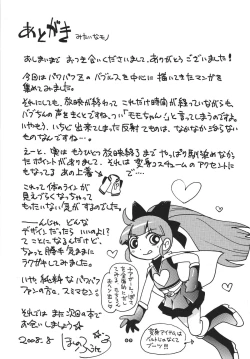 あとがき みたいなモノ
おしまいまで おつき合いくださいまして、ありがとうございました!
今回はパワパフZの バブルスを中心に 描いてきたマンガを
集めてみました。
それにしても、放映が終わって これだけ時間が経っていながらも、
バブちゃんの声をきくとですね、つい「モモちゃん」と言ってしまうのですよ。
いやもう、いちど 出来てしまった反射ってものは、なかなか治らない
ものなんですね。
えーと、実は もうひとつ 放映終了まで やっぱり馴染めなかっ
たポイントがありまして、それは 変身コスチュームの アクセントに
もなってる あの上着
これって体のラインが
見えづらくなっちゃって
もったいない気がするのでした。
――んじゃ、どんな
デザインだったら いいのよ!?
てことになるんだけど、
ちょっと 簡単すぎますね
ラクガキしてみました。
いや 純粋な パワパフ
ファンの方々、スミマセン
それではまた次回の本で
お会いしましょう
2008.8
変身アイテムは
ベルトじゃなくて
ブーツ!!